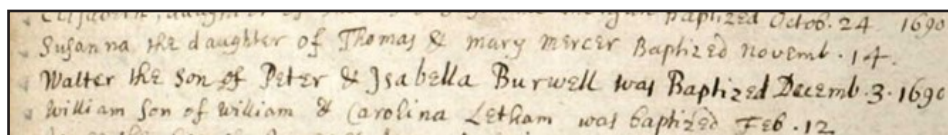 daughter of Baptized Octob. 24 1690
Susanna the daughter of Thomas & mary mercer Baptized novemb. 14.
Walter the Son of Peter & Isabella Burwell was Baptized Decemb. 3. 1690
William Son of William & Carolina Letham was baptized Feb. 12